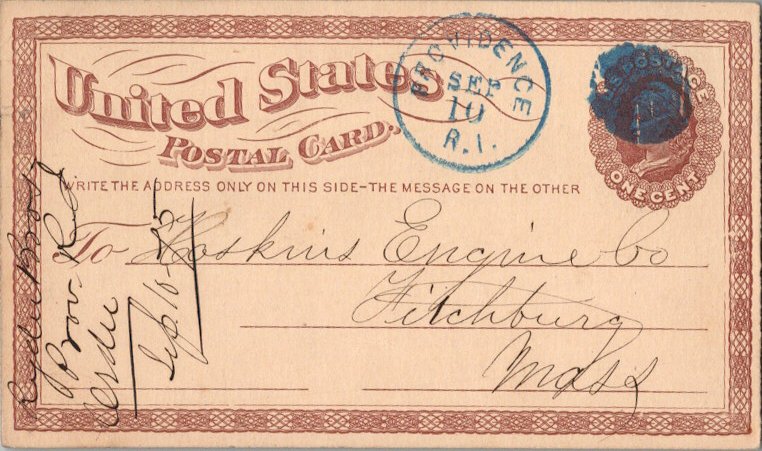 United States
POSTAL CARD.
PROVIDENCE
SEP
10
R.I.
U.S. POSTAGE
ONE CENT
WRITE THE ADDRESS ONLY ON THIS SIDE-THE MESSAGE ON THE OTHER
To Hoskins Engine Co
Fitchburg
Mass
Prov. R.I.
Order
Sep 10